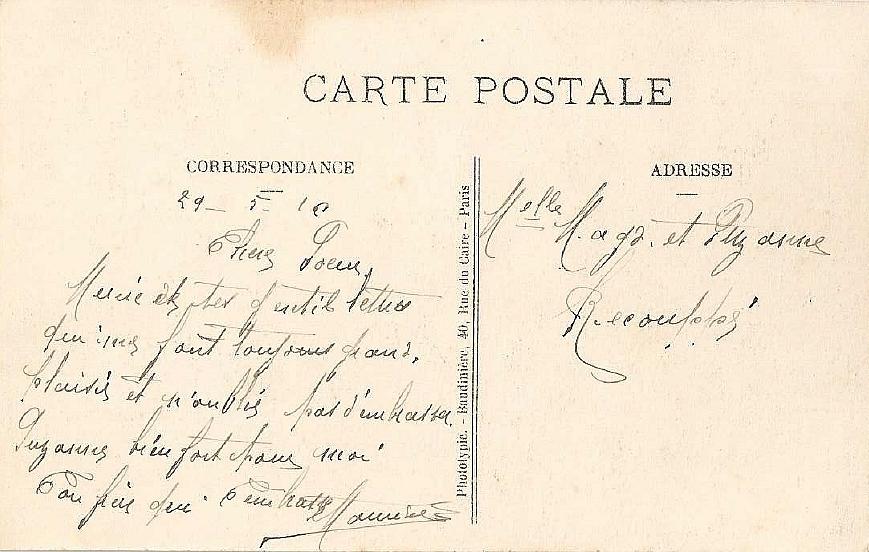 CARTE POSTALE
CORRESPONDANCE
29 - 5 - 18
Chère Soeur,
Merci de tes gentil lettres
qui me font toujours grand
plaisir et n'oublie pas d'embrasser
Suzanne bien fort pour moi
Ton frère qui t'embrasse Maurice
Phototypie. - Baudinière, 40, Rue du Caire - Paris
ADRESSE
Melle Mag. et Suzanne